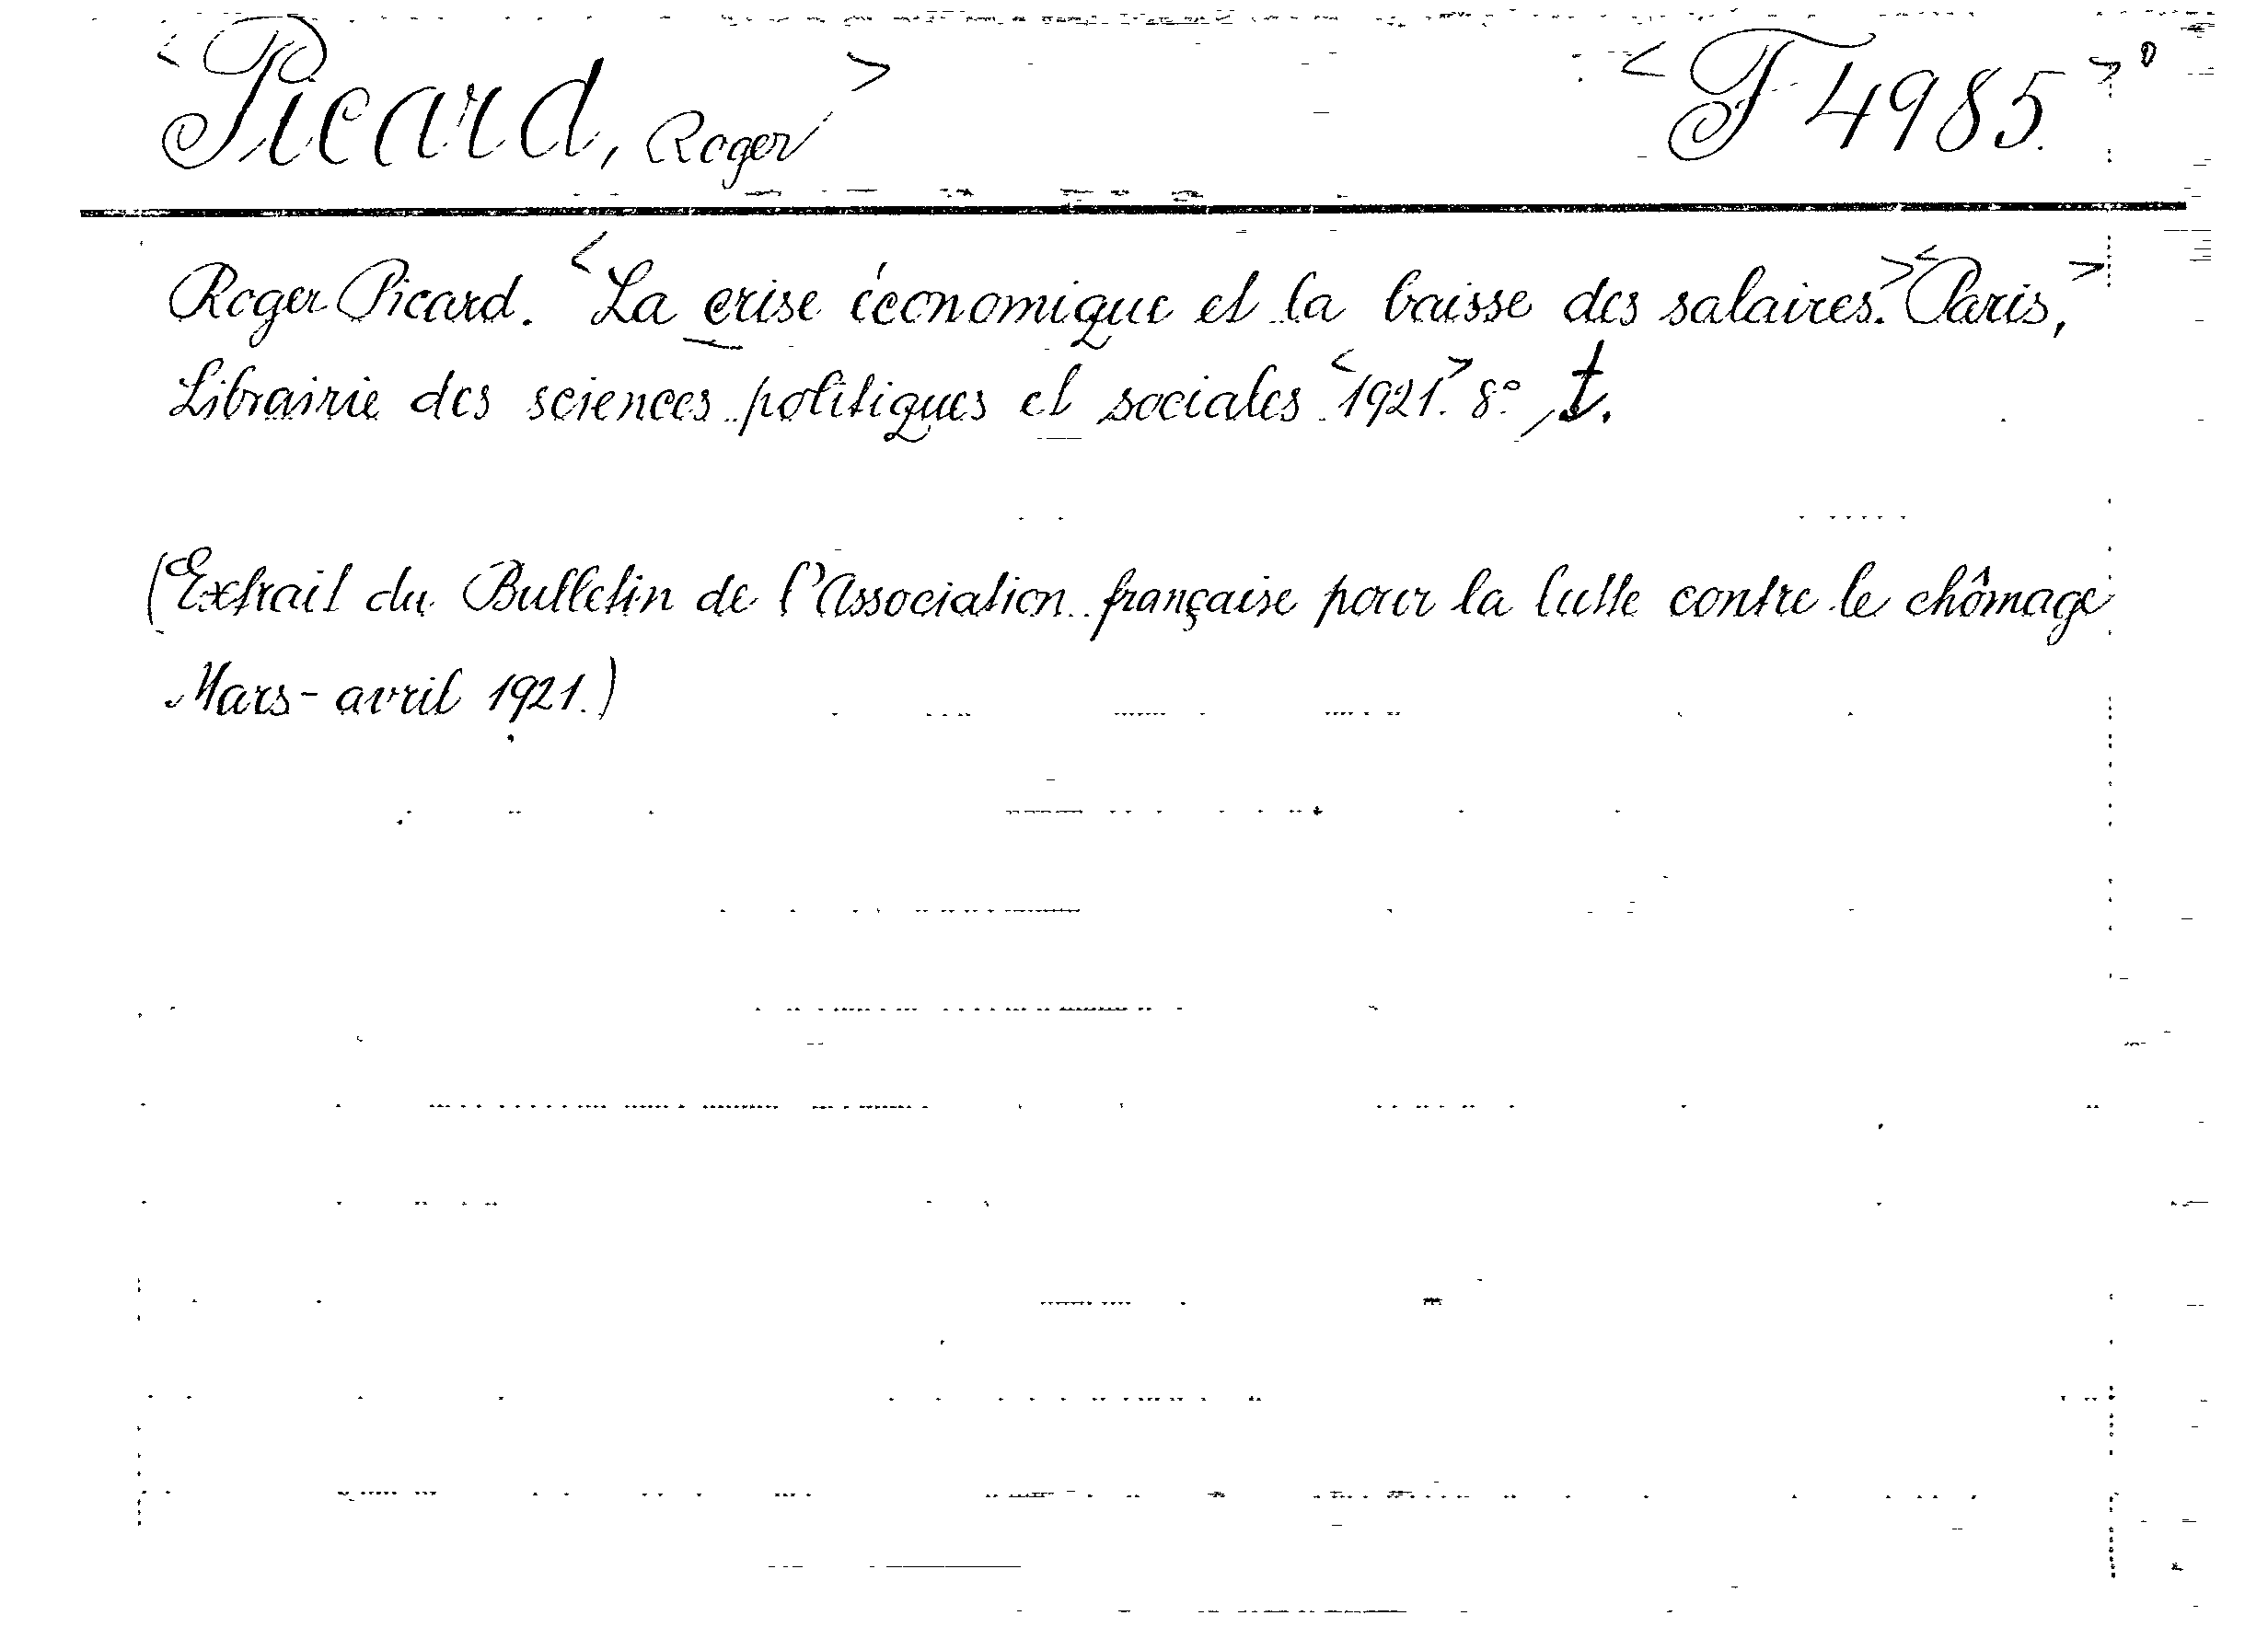 <Picard, Roger> <F 4985.>°
Roger Picard. <La crise économique et la baisse des salaires.> <Paris,>
Librairie des sciences politiques et sociales <1921.> 8° t.
(Extrait du Bulletin de l'Association française pour la lutte contre le chômage
Mars-avril 1921.)